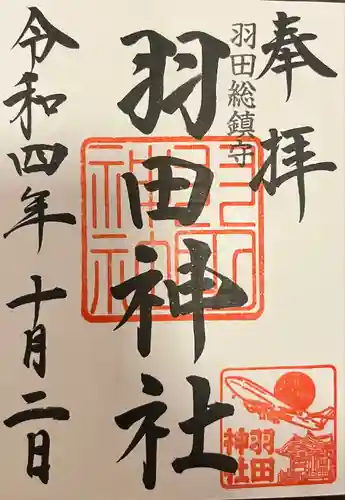 奉拝
羽田総鎮守
羽田神社
羽田神社
羽田
神社
令和四年十月二日